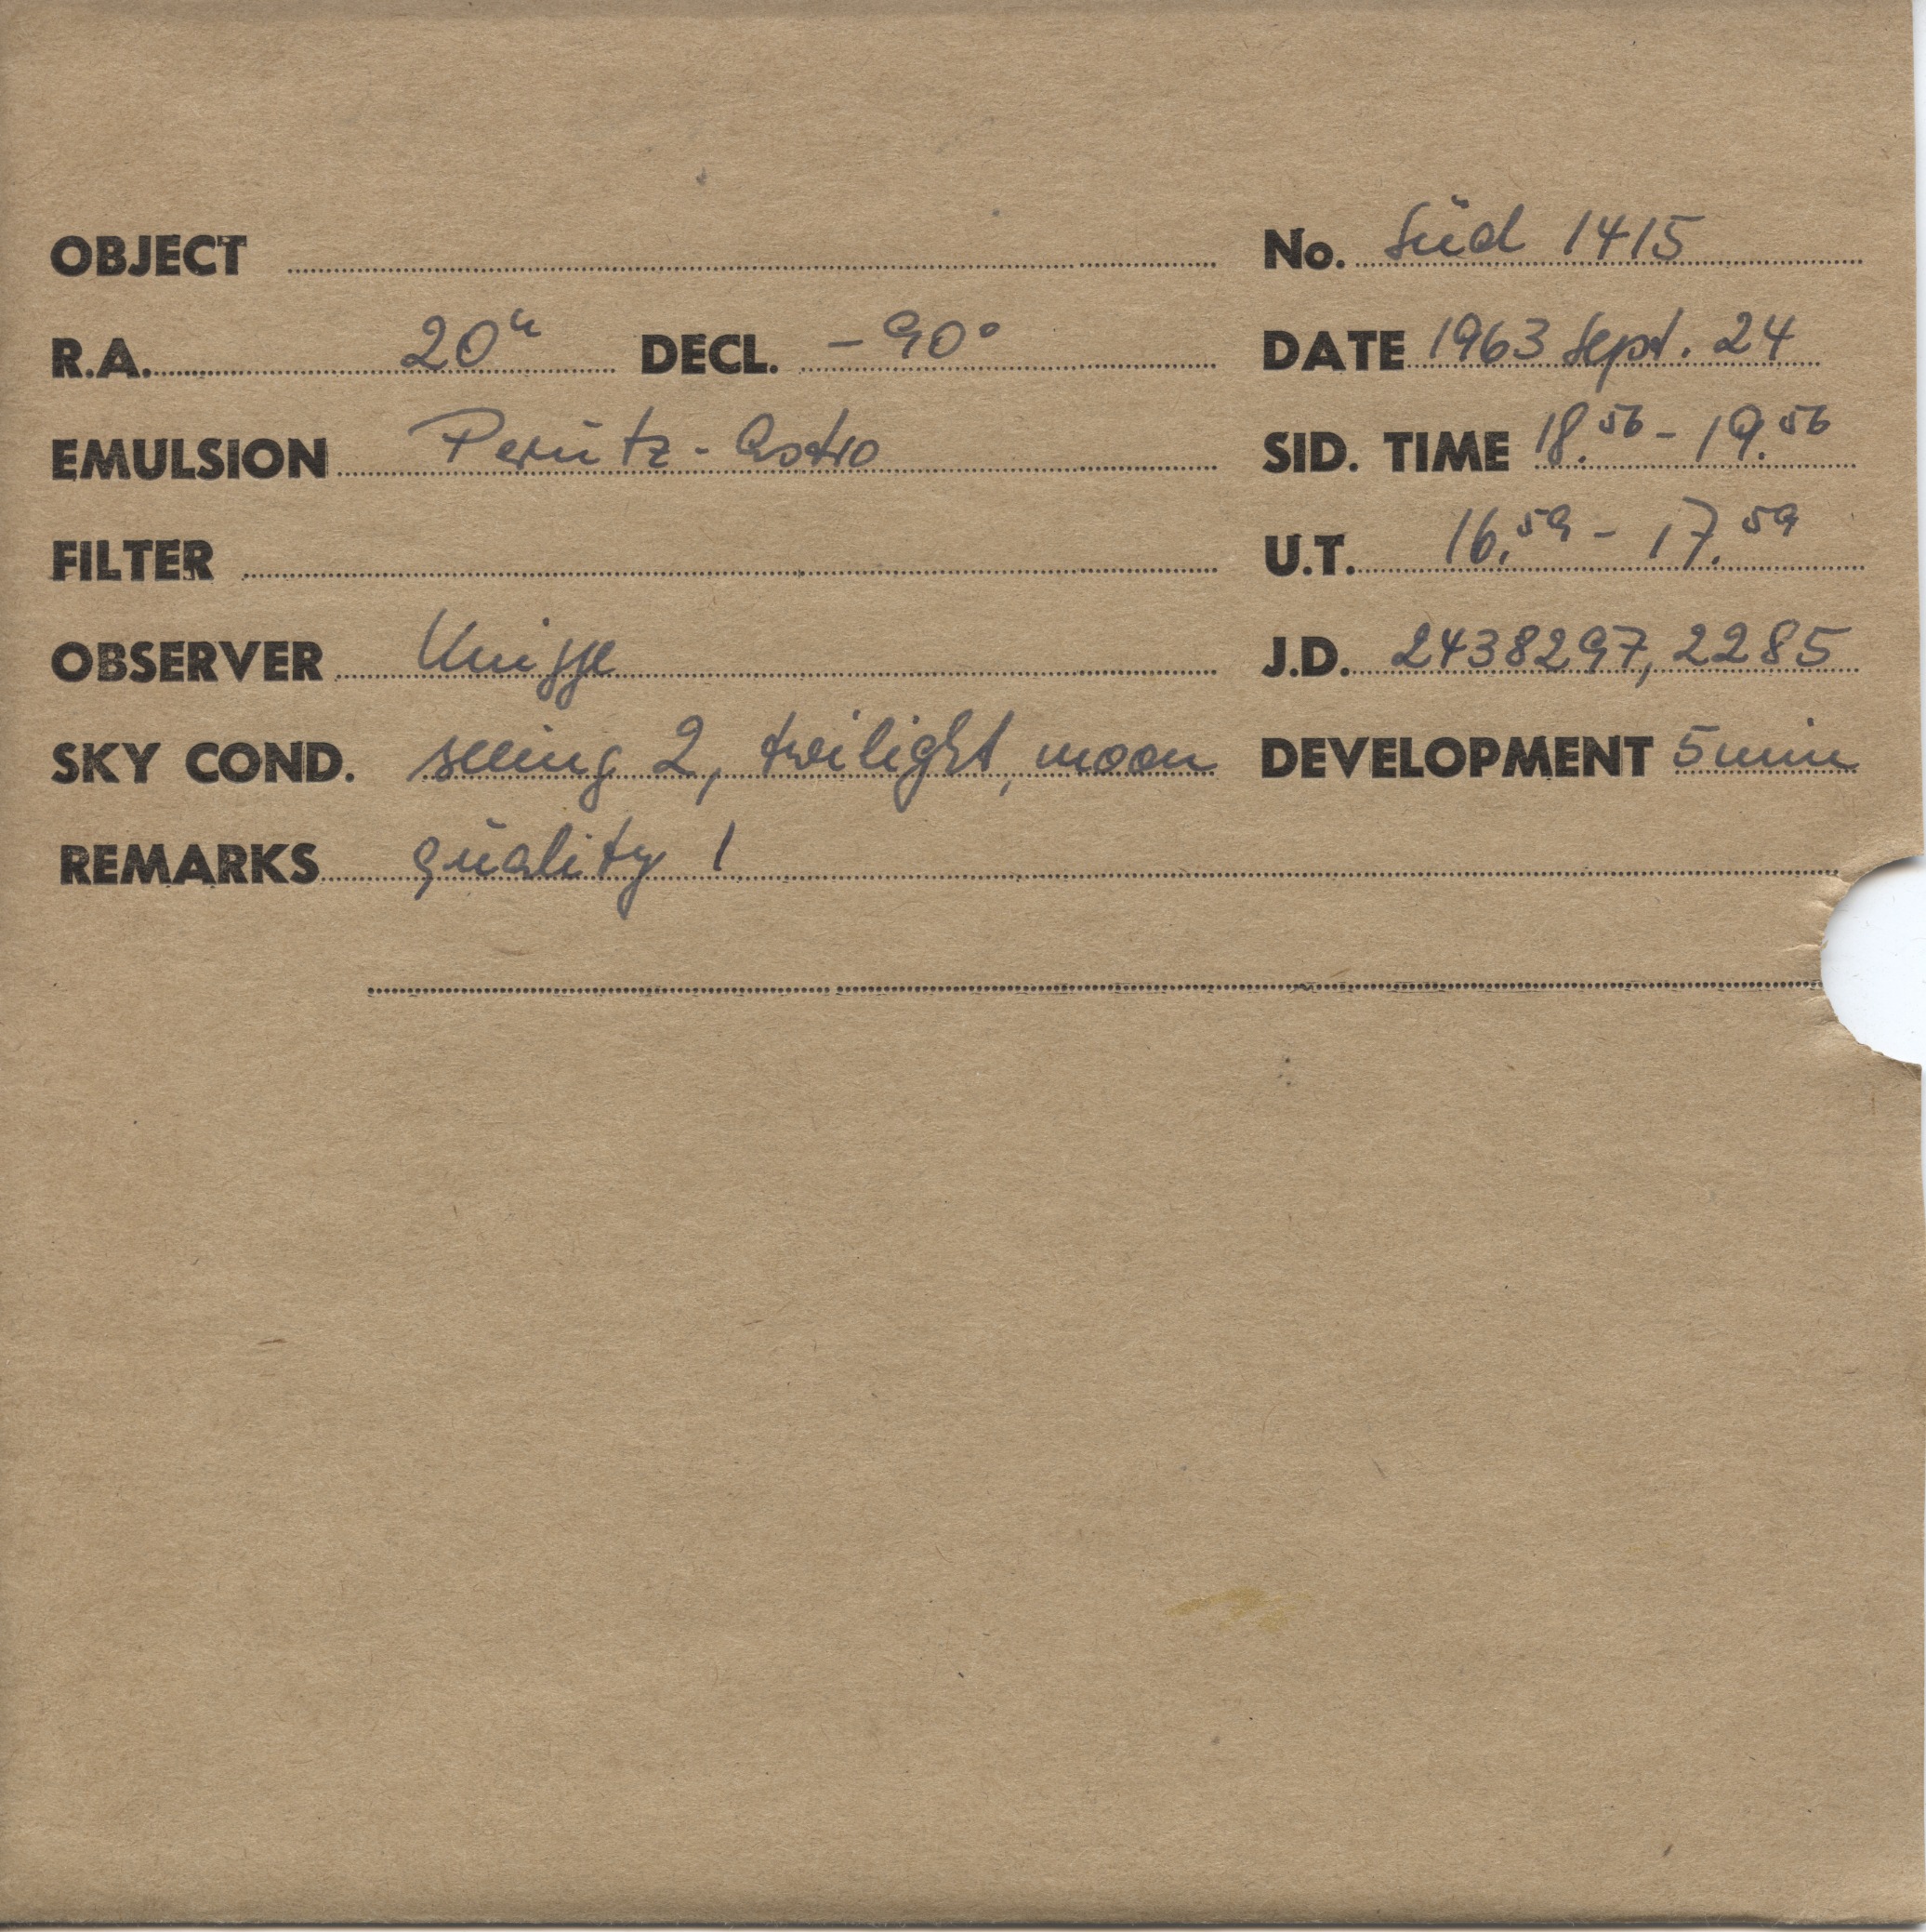 OBJECT No. Süd 1415
R.A. 20h DECL. -90° DATE 1963 Sept. 24
EMULSION Perutz-Astro SID. TIME 18.56 - 19.56
FILTER U.T. 16.59 - 17.59
OBSERVER J.D. 2438297,2285
SKY COND. seeing 2, twilight, moon DEVELOPMENT 5 min
REMARKS quality 1